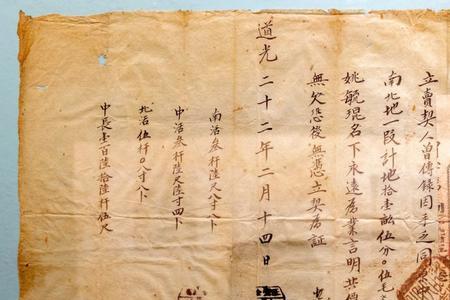 立賣契人曾傳錄因手乏同
南北地一段計地拾壹畝伍分〇伍毛
姚毓琨名下永遠為業言明共
無欠恐後無憑立契為証
道光二十二年二月十四日
南活叁杆陸尺八寸八卜
中活叁杆陸尺陸寸四卜
北活伍杆〇八寸八卜
中長壹百陸拾陸杆伍尺